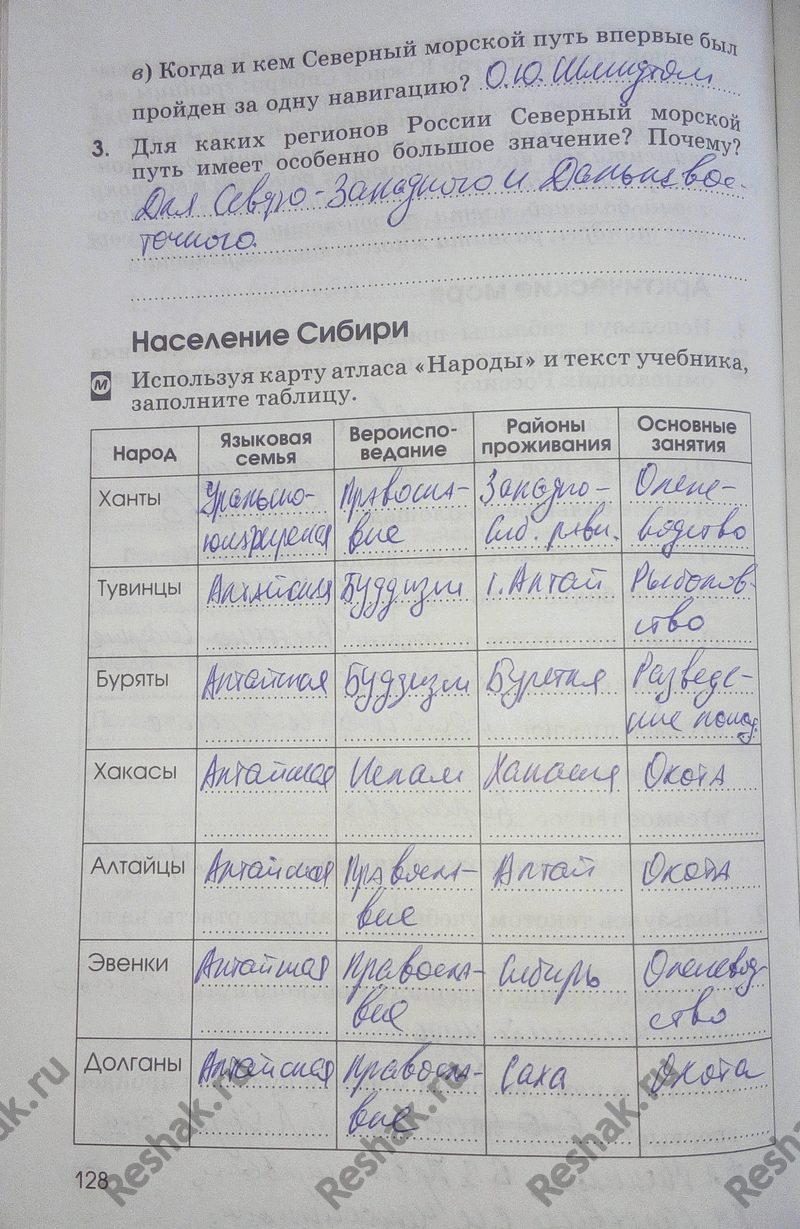 в) Когда и кем Северный морской путь впервые был
пройден за одну навигацию? О.Ю. Шмидтом
3. Для каких регионов России Северный морской
путь имеет особенно большое значение? Почему?
Для Северо-Западного и Дальневос-
точного.
Население Сибири
М Используя карту атласа «Народы» и текст учебника,
заполните таблицу.
Народ Языковая семья Вероиспо-ведание Районы проживания Основные занятия
Ханты Уральско- Правосла- Западно- Олене-
юкагирская вие Сиб. равн. водство
Тувинцы Алтайская Буддизм Алтай Рыболов-
ство
Буряты Алтайская Буддизм Бурятия Разведе-
ние
Хакасы Алтайская Ислам Хакасия Охота
Алтайцы Алтайская Правосла- Алтай Охота
вие
Эвенки Алтайская Правосла- Сибирь Оленевод-
вие ство
Долганы Алтайская Правосла- Саха Охота
вие
128
Reshak.ru
Reshak.ru
Reshak.ru